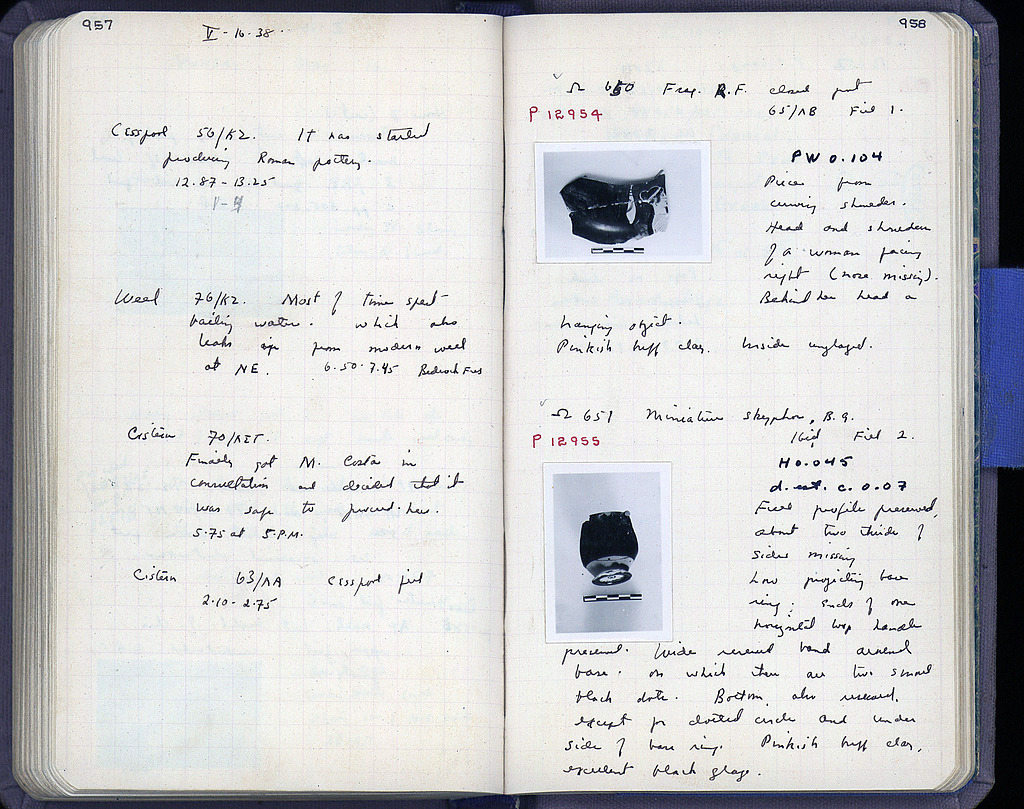 957
V - 16 - 38
Cesspool 56/KZ. It has started
producing Roman pottery.
12.87 - 13.25
V - 4
Well 76/KZ. Most of time spent
bailing water. which also
leaks in from modern well
at NE. 6.50 - 7.45 Bedrock
Cistern 70/
Finally got M. Costa in
consultation and decided that it
was safe to proceed.
5.75 at 5 P.M.
Cistern 63/AA Cesspool
2.10 - 2.75
958
Ω 650 Frag. R.F. closed pot
P 12954 65/AB Fill 1.
PW 0.104
Piece from
curving shoulder.
Head and shoulders
of a woman facing
right (nose missing).
Behind her head a
hanging object.
Pinkish buff clay. Inside unglazed.
Ω 651 Miniature skyphos, B.g.
P 12955 Ibid Fill 2.
H 0.045
d. est. c. 0.07
Full profile preserved,
about two thirds of
sides missing
Low projecting base
ring; ends of one
horizontal loop handle
preserved. Wide reserved band around
base. on which there are two small
black dots. Bottom also reserved,
except for dotted circle and under
side of base ring. Pinkish buff clay,
excellent black glaze.